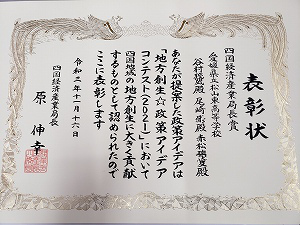 表彰状
四国経済産業局長賞
愛媛県立松山東高等学校
谷村 殿 尾崎 殿 赤松 殿
あなたが提案した政策アイデアは
「地方創生☆政策アイデア
コンテスト(2021)」において
四国地域の地方創生に大きく貢献
するものとして認められたので
ここに表彰します
令和三年十一月十六日
四国経済産業局長
原 伸幸